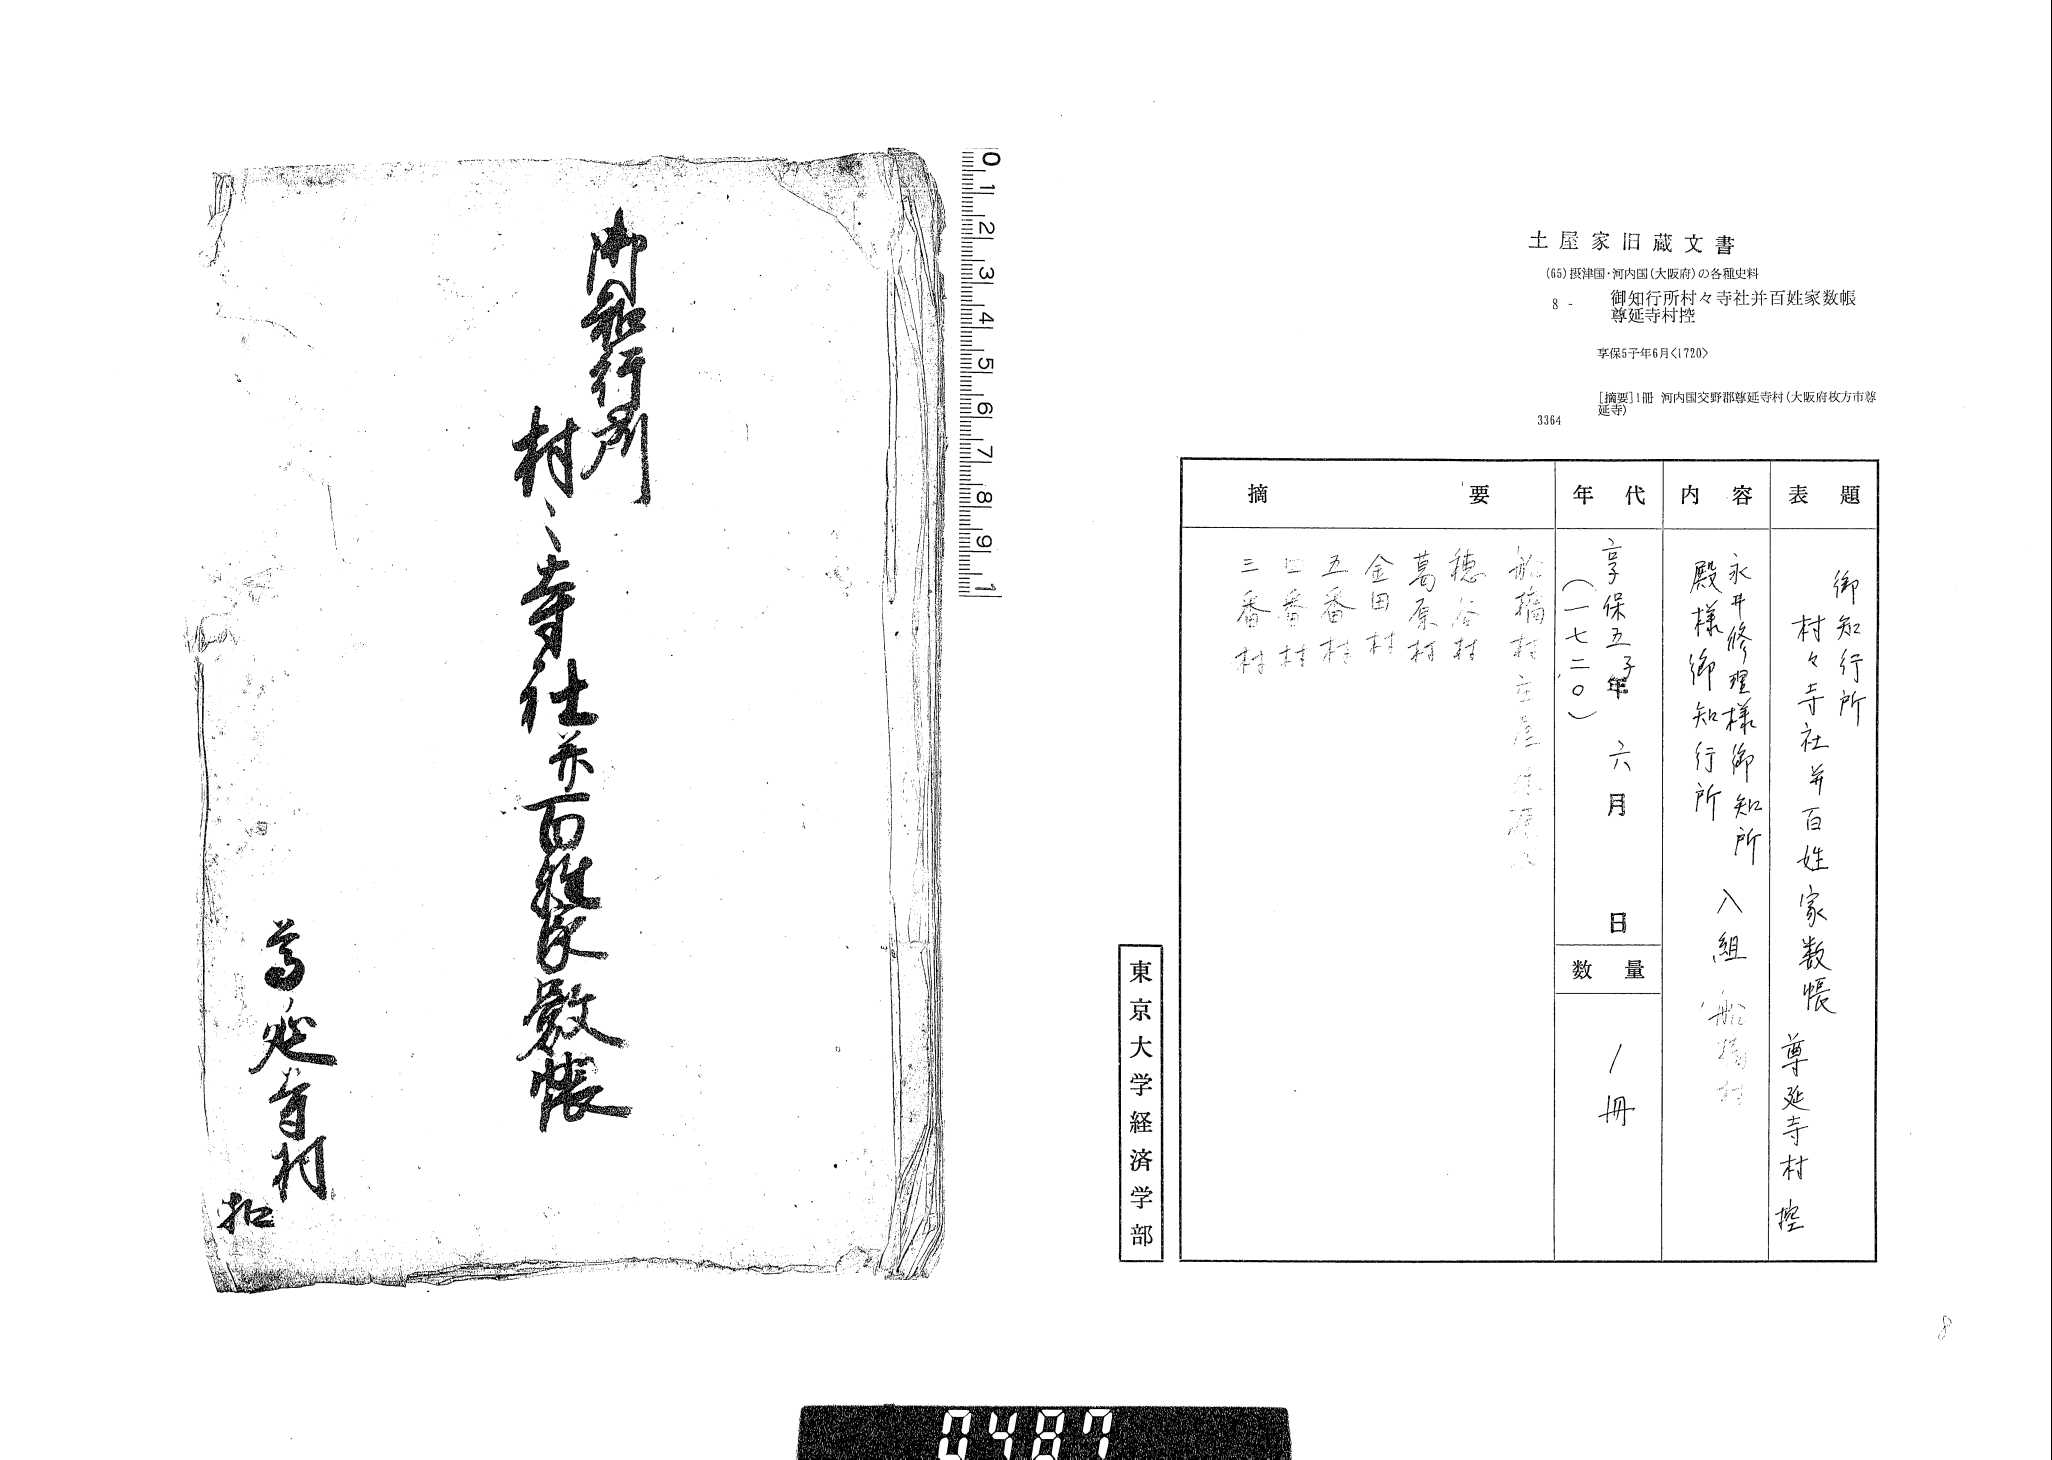 土屋家旧蔵文書
(65)摂津国・河内国(大阪府)の各種史料
8 - 御知行所村々寺社并百姓家数帳
尊延寺村控
享保5子年6月<1720>
[摘要]1冊 河内国交野郡尊延寺村(大阪府枚方市尊
延寺)
3364
表題
御知行所
村々寺社并百姓家数帳 尊延寺村 控
内容
永井修理様御知所
殿様御知行所 入組 船橋村
年代
享保五子年 六月 日
(一七二〇)
数量
1冊
摘要
船橋村 土屋
穂谷村
葛原村
金田村
五番村
三番村
東京大学経済学部
御知行所
村々寺社并百姓家数帳
尊延寺村
扣
0 1 2 3 4 5 6 7 8 9 1
8
0487